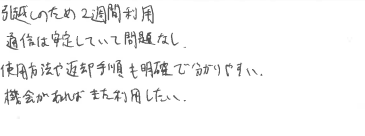 引越しのため2週間利用
通信は安定していて問題なし.
使用方法や返却手順も明確で分かりやすい.
機会があればまた利用したい.